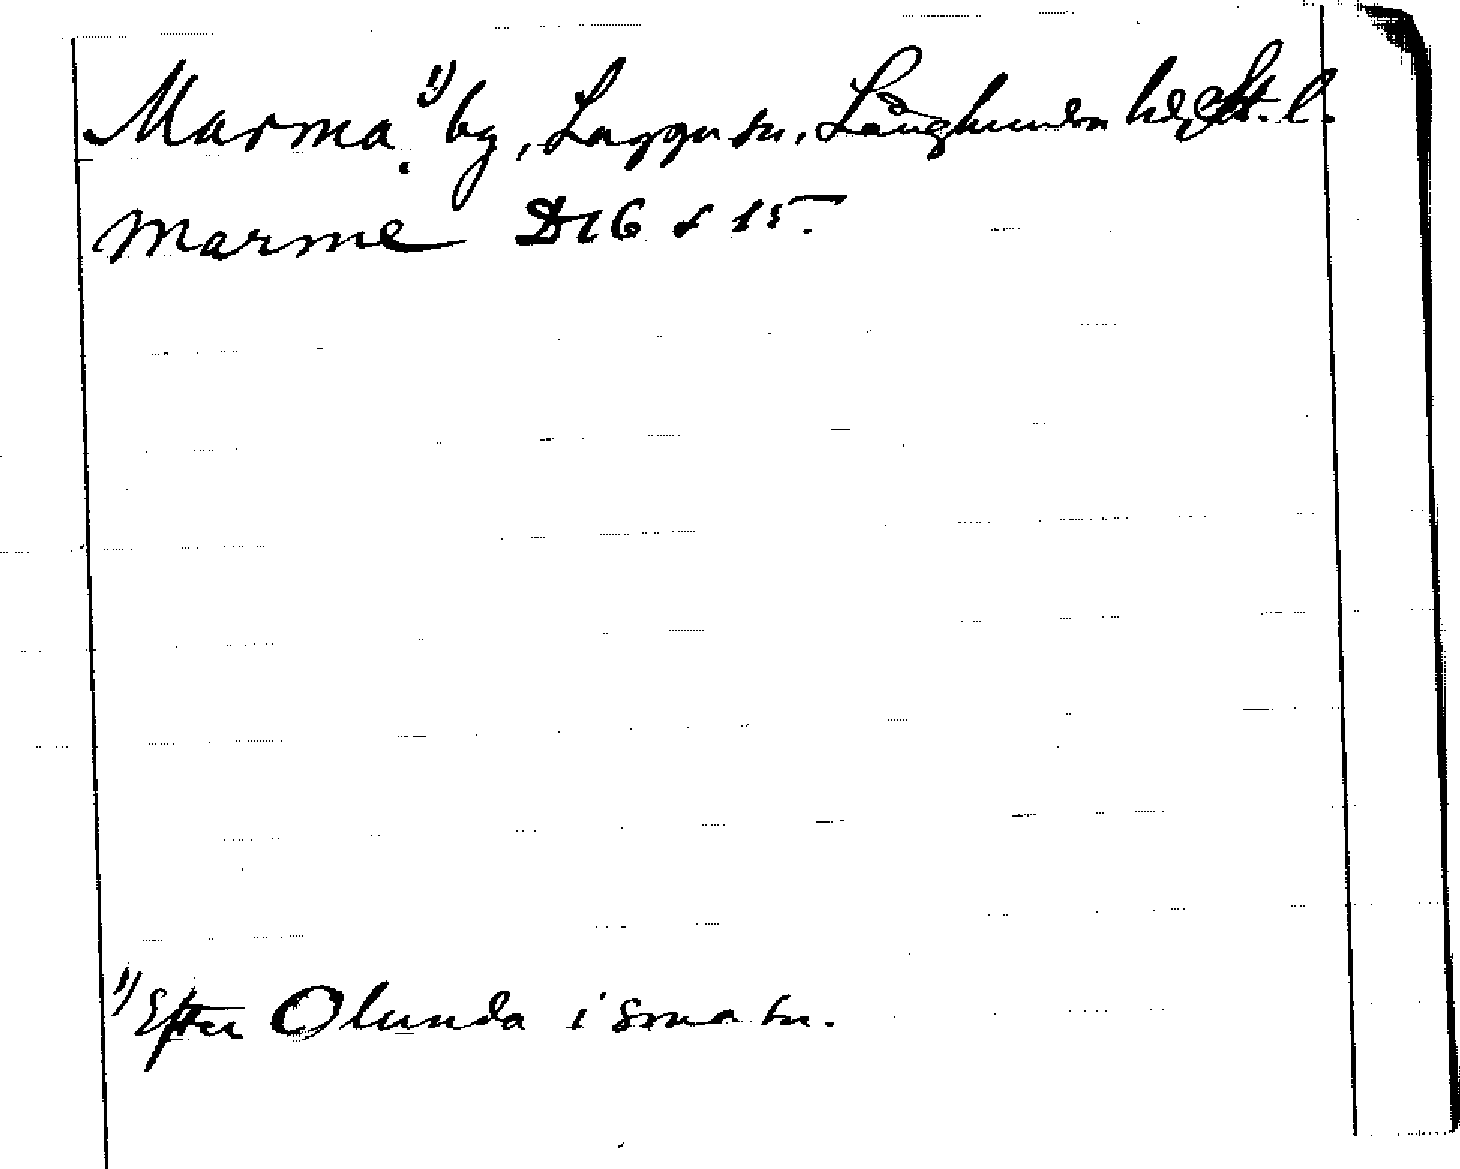 Marma.¹⁾ by, Lagga sn, Långhundra hd, St. l.
Marme D16 s 15.
¹⁾ Efter Olunda i sma sn.